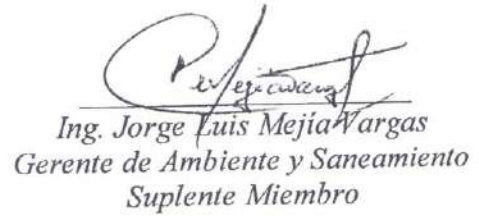 Ing. Jorge Luis Mejía Vargas
Gerente de Ambiente y Saneamiento
Suplente Miembro